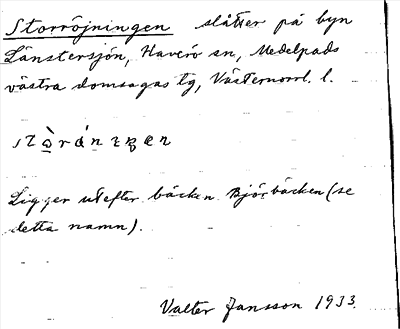 Storröjningen slåtter på byn
Länstersjön, Haverö sn, Medelpads
västra domsagas tg, Västernorrl. l.
Ligger utefter bäcken Björbäcken (se
detta namn).
Valter Jansson 1933.